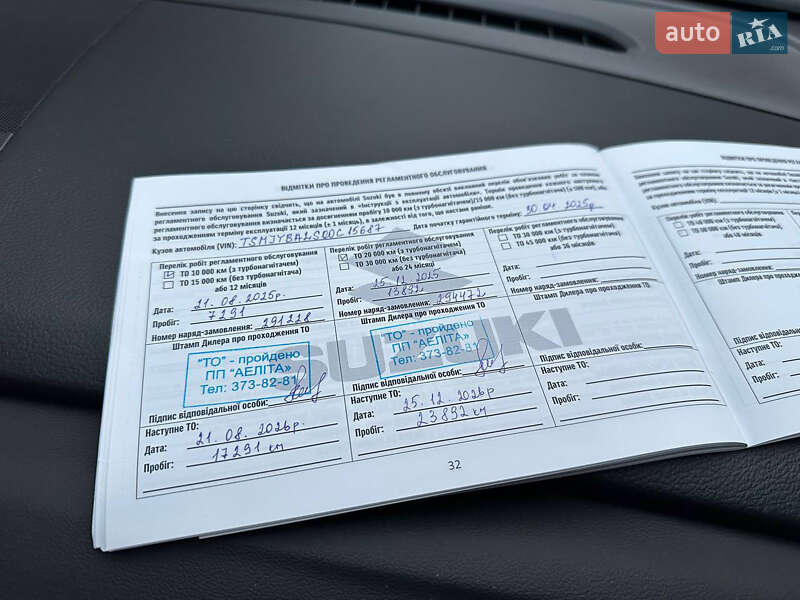 auto RIA .com
ВІДМІТКИ ПРО ПРОВЕДЕННЯ РЕГЛАМЕНТНОГО ОБСЛУГОВУВАННЯ
Внесення запису на цю сторінку свідчить, що на автомобілі Suzuki був в повному обсязі виконаний перелік обов'язкових робіт за планом
регламентного обслуговування Suzuki, який зазначений в «Інструкції з експлуатації автомобіля». Термін проведення кожного наступного
регламентного обслуговування визначається за досягненням пробігу 10 000 км (з турбонагнітачем)/15 000 км (без турбонагнітача) (± 500 км), або
за проходженням терміну експлуатації 12 місяців (± 1 місяць), в залежності від того, що настане раніше.
Кузов автомобіля (VIN): TSMJYBA2S00C15687 Дата початку гарантійного терміну: 30.04.2025р
Перелік робіт регламентного обслуговування
ТО 10 000 км (з турбонагнітачем)
ТО 15 000 км (без турбонагнітача)
або 12 місяців
Дата: 21.08.2025р.
Пробіг: 7291
Номер наряд-замовлення: 291228
Штамп Дилера про проходження ТО
"ТО" - пройдено
ПП "АЕЛІТА»
Тел: 373-82-81
Підпис відповідальної особи:
Наступне ТО:
Дата: 21.08.2026р.
Пробіг: 17291 км
Перелік робіт регламентного обслуговування
ТО 20 000 км (з турбонагнітачем)
ТО 30 000 км (без турбонагнітача)
або 24 місяці
Дата: 25.12.2025
Пробіг: 13892
Номер наряд-замовлення: 294472
Штамп Дилера про проходження ТО
"ТО" - пройдено
ПП "АЕЛІТА»
Тел: 373-82-81
Підпис відповідальної особи:
Наступне ТО:
Дата: 25.12.2026р
Пробіг: 23892 км
Перелік робіт регламентного обслуговування
ТО 30 000 км (з турбонагнітачем)
ТО 45 000 км (без турбонагнітача)
або 36 місяців
Дата:
Пробіг:
Номер наряд-замовлення:
Штамп Дилера про проходження ТО
Підпис відповідальної особи:
Наступне ТО:
Дата:
Пробіг:
SUZUKI
32
ВІДМІТКИ ПРО ПРОВЕДЕННЯ
Кузов автомобіля (VIN):
Перелік робіт регламентного обслуговування
або 48 місяців
Дата:
Пробіг:
Номер наряд-замовлення:
Штамп Дилера про проходження ТО
Підпис відповідальної особи:
Наступне ТО:
Дата:
Пробіг: